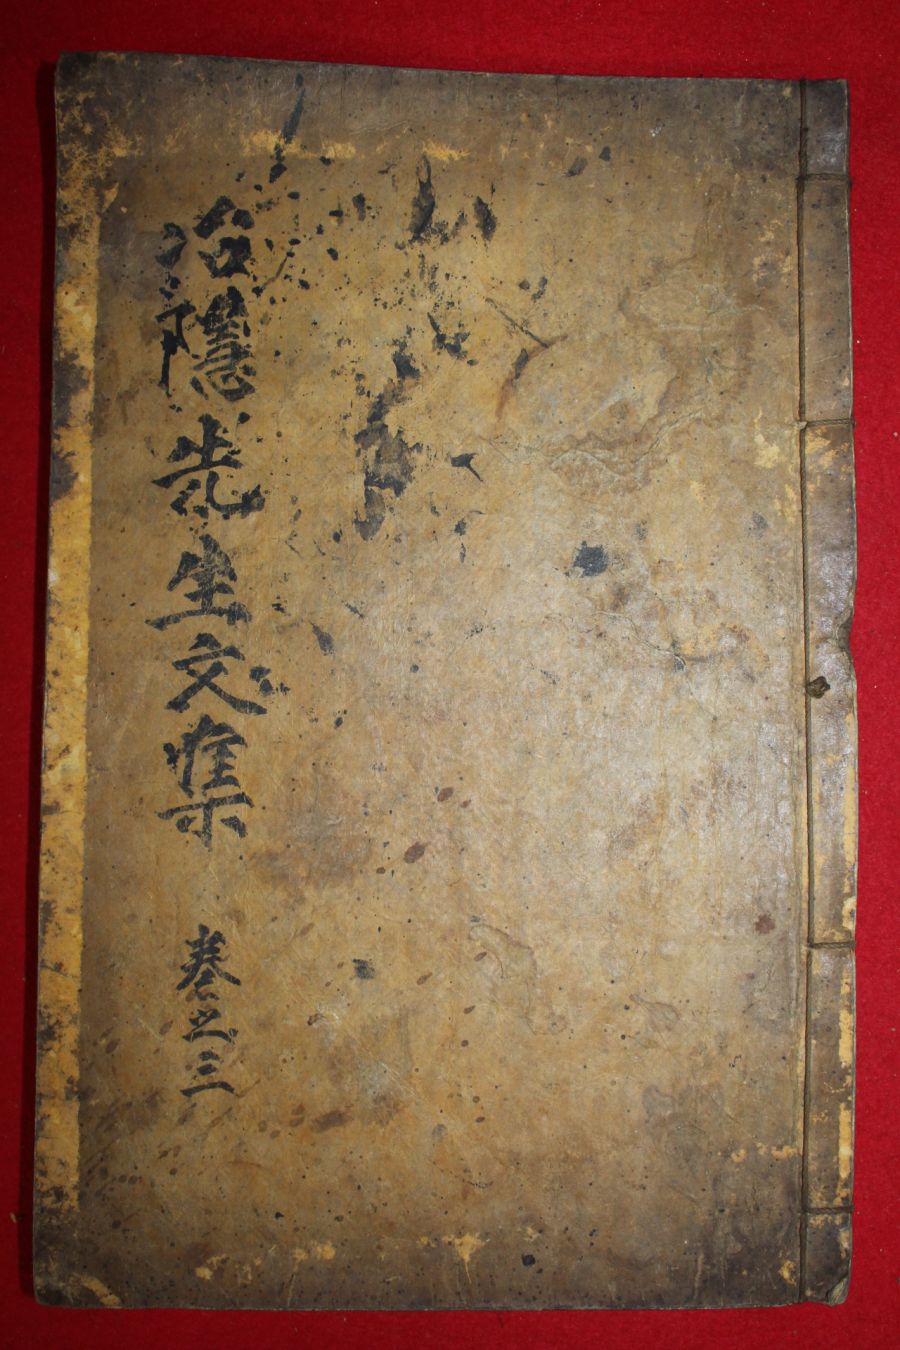 冶隱先生文集 卷之三